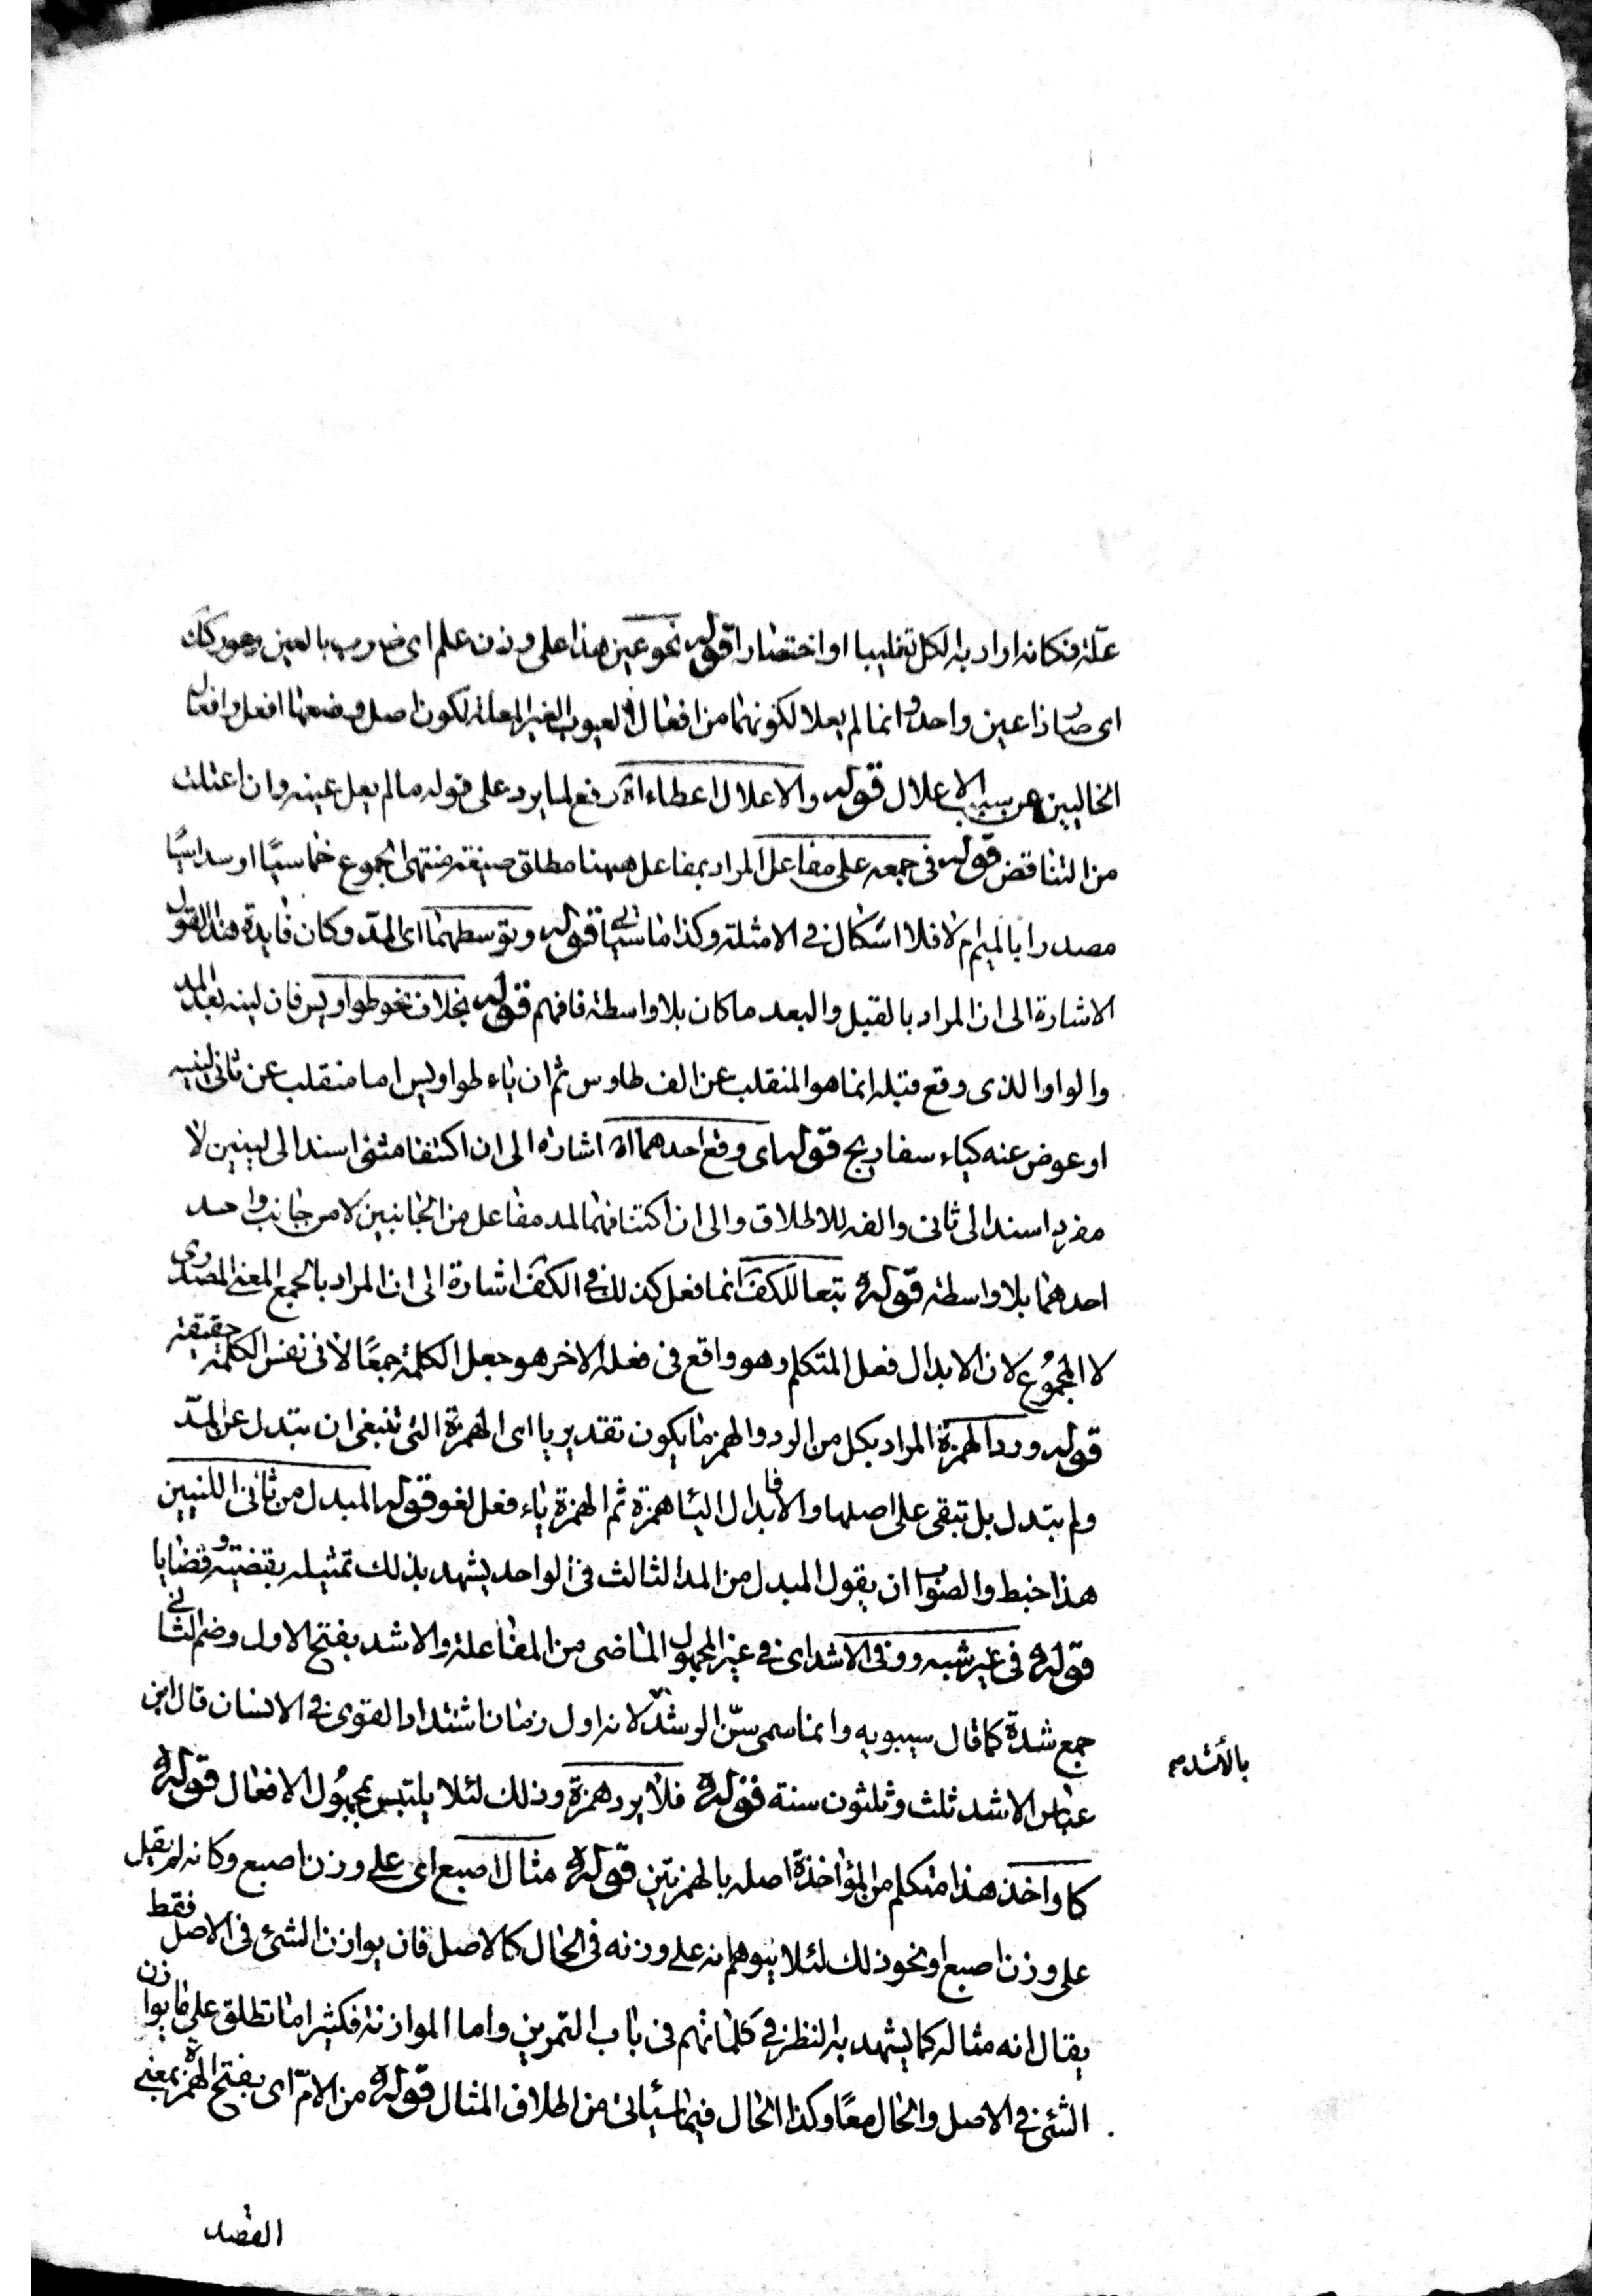 علة فكانه اراد به الكل تغليبا او اختصارا قوله نحو عين هذا على وزن علم اى ضرب بالعين وعور كك
اى صار ذا عين واحد وانما لم يعلا لكونهما من افعال العيوب الغير المعلة لكون اصل وضعها افعل وافعال
الخاليين عن سبب الاعلال قوله والاعلال اعطاء اه رفع لما يرد على قوله ما لم يعل عينه وان اعتلت
من التناقض قوله فى جمعه على مفاعل المراد بمفاعل ههنا مطلق صيغة منتهى الجموع خماسيًا او سداسيًا
مصدرا بالميم ام لا فلا اشكال فى الامثلة وكذا ما سيأتى قوله وتوسطهما اى المدّ وكان فايدة هذا القول
الاشارة الى ان المراد بالقبل والبعد ما كان بلا واسطة فافهم قوله بخلاف نحو طواويس فان لينه بعد المد
والواو الذى وقع قبله انما هو المنقلب عن الف طاوس ثم ان ياء طواويس اما منقلب عن ثانى لينيه
او عوض عنه كياء سفاريج قوله اى وقع احدهما اه اشارة الى ان اكتنفا مثنى اسند الى لينين لا
مفرد اسند الى ثانى والفه للاطلاق والى ان اكتنافهما لمد مفاعل من الجانبين لا من جانب واحد
احدهما بلا واسطة قوله تبعا للكفّ انما فعل كذلك فى الكفّ اشارة الى ان المراد بالجمع المعنى المصدرى
لا المجموع لان الابدال فعل المتكلم وهو واقع فى فعله الاخر هو جعل الكلمة جمعًا لا فى نفس الكلمة حقيقة
قوله ورد الهمزة المراد بكل من الرد والهمز ما يكون تقديريا اى الهمزة التى تنبغى ان تبتدل عن المدّ
ولم تبتدل بل تبقى على اصلها والا فابدال الياء همزة ثم الهمزة ياء فعل لغو قوله المبدل من ثانى اللينين
هذا خبط والصواب ان يقول المبدل من المد الثالث فى الواحد يشهد بذلك تمثيله بقضية وقضايا
قوله فى غير شبه ووفى الاشد اى فى غير المجهول الماضى من المفاعلة والاشد بفتح الاول وضم الثانى
جمع شدة كما قال سيبويه وانما سمى سنّ الرشد بالأشد لانه اول زمان اشتداد القوى فى الانسان قال ابن
عباس الاشد ثلث وثلثون سنة قوله فلا يرد همزة وذلك لئلا يلتبس بمجهول الافعال قوله
كاواخذ هذا متكلم من المؤاخذة اصله بالهمزتين قوله مثال اصبع اى على وزن اصبع وكانه لم يقل
على وزن اصبع او نحو ذلك لئلا يتوهم انه على وزنه فى الحال كالاصل فان يوازن الشئ فى الاصل فقط
يقال انه مثاله كما يشهد به النظر فى كلماتهم فى باب التمرين واما الموازنة فكثيرا ما تطلق على ما يوازن
الشئ فى الاصل والحال معًا وكذا الحال فيما سيأتى من اطلاق المثال قوله من الامّ اى بفتح الهمزة بمعنى
القصد